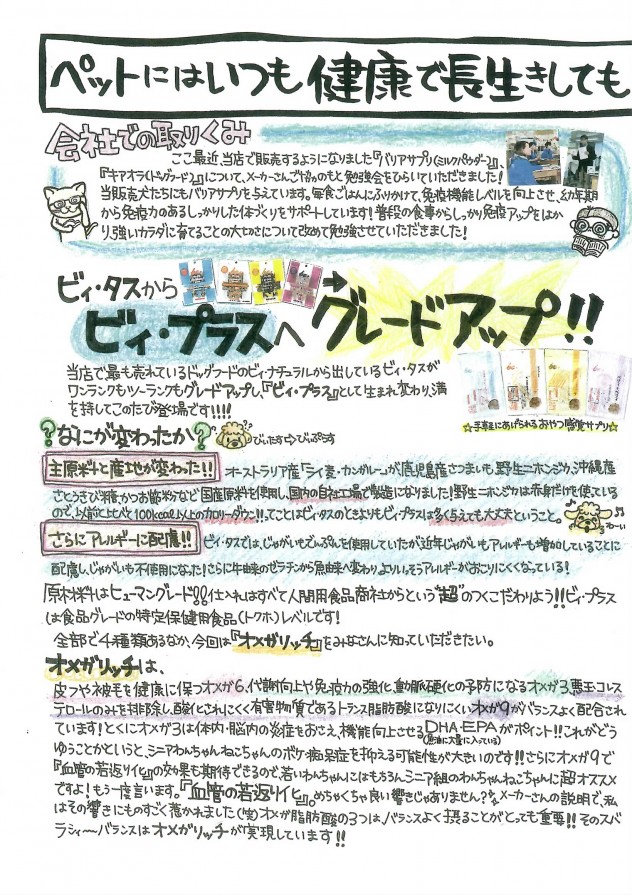 ペットにはいつも健康で長生きしても
会社での取りくみ
ここ最近、当店で販売するようになりました『バリアサプリ(ミルクパウダー2)』、
『キアオラ(ドッグフード2)』について、メーカーさんご協力のもと勉強会をひらいていただきました!
当販売犬たちにもバリアサプリを与えています。毎食ごはんにふりかけて、免疫機能レベルを向上させ、幼年期
から免疫力のあるしっかりした体づくりをサポートしています!普段の食事からしっかり免疫アップをはか
り、強いカラダに育てることの大切さについて改めて勉強させていただきました!
ビィ・タスから
ビィ・プラスへ
グレードアップ!!
当店で最も売れているドッグフードのビィ・ナチュラルから出しているビィ・タスが
ワンランクもツーランクもグレードアップし、『ビィ・プラス』として生まれ変わり、満
を持してこのたび登場です!!!!
☆手軽にあげられるおやつ感覚サプリ☆
?なにが変わったか?
びぃたす⇨びぃぷらす
主原料と産地が変わった!!
オーストラリア産「ライ麦・カンガルー」が鹿児島産さつまいも、野生ニホンジカ、沖縄産
さとうきび糖、かつお節粉など国産原料を使用し、国内の自社工場で製造になりました!野生ニホンジカは赤身だけを使っている
ので、以前と比べと100kcal以上のカロリーダウン!!ってことはビィ・タスのときよりもビィ・プラスは多く与えても大丈夫ということ。
わーい
さらにアレルギーに配慮!!
ビィ・タスでは、じゃがいもでんぷんを使用していたが近年じゃがいもアレルギーも増加していることに
配慮し、じゃがいも不使用になった!さらに牛由来のゼラチンから魚由来へ変わりよりいっそうアレルギーがおこりにくくなっている!
原材料はヒューマングレード!!仕入れはすべて人間用食品商社からという"超"のつくこだわりよう!!ビィ・プラス
は食品グレードの特定保健用食品(トクホ)レベルです!
全部で4種類あるなか、今回は『オメガリッチ』をみなさんに知っていただきたい。
オメガリッチは、
皮フや被毛を健康に保つオメガ6、代謝向上や免疫力の強化、動脈硬化の予防になるオメガ3、悪玉コレス
テロールのみを排除し、酸化されにくく有害物質であるトランス脂肪酸になりにくいオメガ9がバランスよく配合され
ています!とくにオメガ3は(体内・脳内の炎症をおさえ、機能向上させる)DHA・EPAがポイント!!これがどう
(魚油に大量に入っている)
ゆうことかというと、シニアわんちゃんねこちゃんのボケ・痴呆症を抑える可能性が大きいのです!!さらにオメガ9で
『血管の若返り化』の効果も期待できるので、若いわんちゃんにはもちろんシニア組のわんちゃんねこちゃんに超オススメ
ですよ!もう一度言います。『血管の若返り化』。めちゃくちゃ良い響きじゃありません?メーカーさんの説明で、私
はその響きにものすごく惹かれました(笑)オメガ脂肪酸の3つは、バランスよく摂ることがとっても重要!!そのスバ
ラシィ〜バランスはオメガリッチが実現しています!!